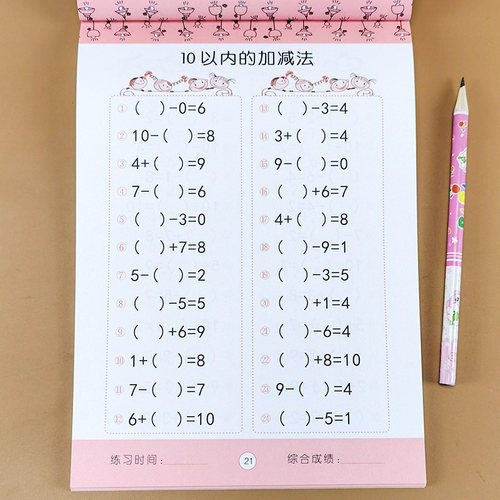 10以内的加减法
① ( )-0=6
② 10-( )=8
③ 4+( )=9
④ 7-( )=6
⑤ ( )-3=0
⑥ ( )+7=8
⑦ 5-( )=2
⑧ ( )-5=5
⑨ ( )+6=9
⑩ 1+( )=8
⑪ 7-( )=7
⑫ 6+( )=10
⑬ ( )-3=4
⑭ 3+( )=4
⑮ 9-( )=0
⑯ ( )+6=7
⑰ 4+( )=8
⑱ ( )-9=1
⑲ ( )-3=5
⑳ ( )+1=4
㉑ ( )-6=4
㉒ ( )+8=10
㉓ 9-( )=4
㉔ ( )-5=1
练习时间: 21 综合成绩: